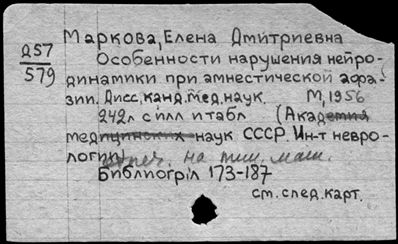 Маркова, Елена Дмитриевна
Д57
579
Особенности нарушения нейро-
динамики при амнестической афа-
зии. Дисс. канд. мед. наук. М, 1956
242л с илл и табл (Академия
медицинских наук СССР. Ин-т невро-
логии) отпеч. на пиш. маш.
Библиогр: л 173-187
см. след. карт.